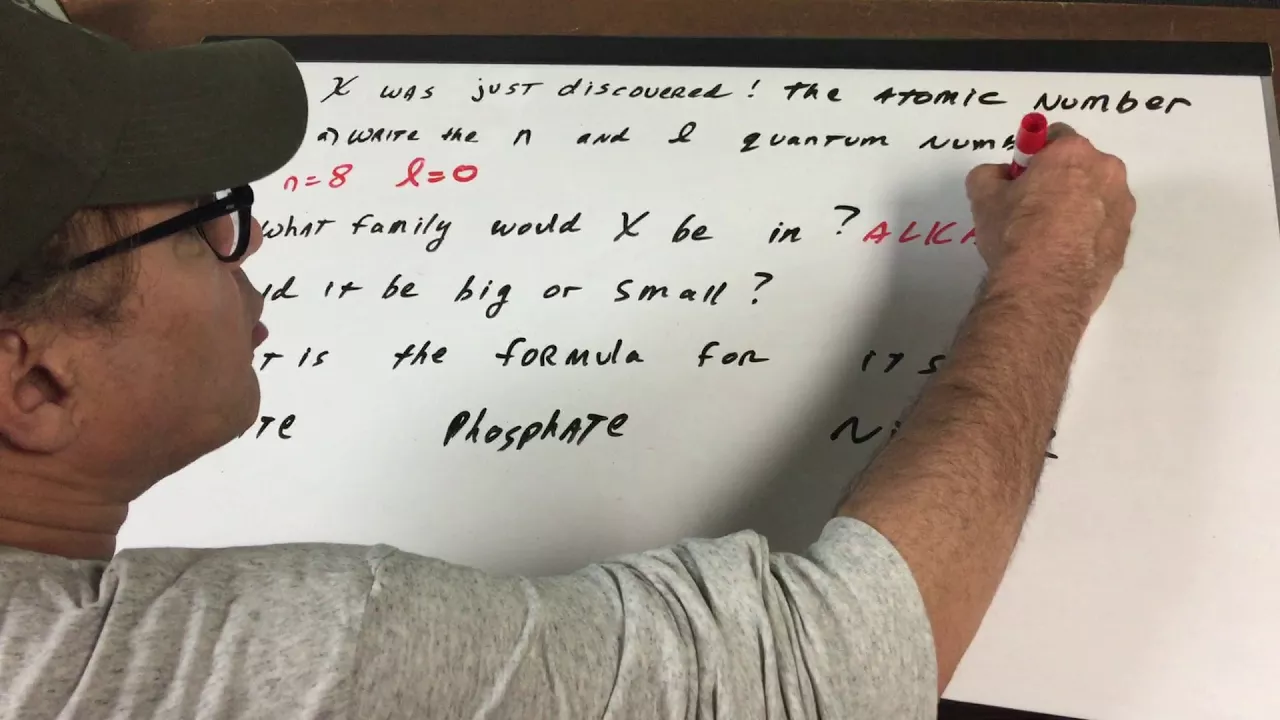 X was just discovered! The Atomic Number
a) Write the n and l quantum Numb
n=8 l=0
what family would X be in? ALKA
it be big or small?
is the formula for its
Phosphate